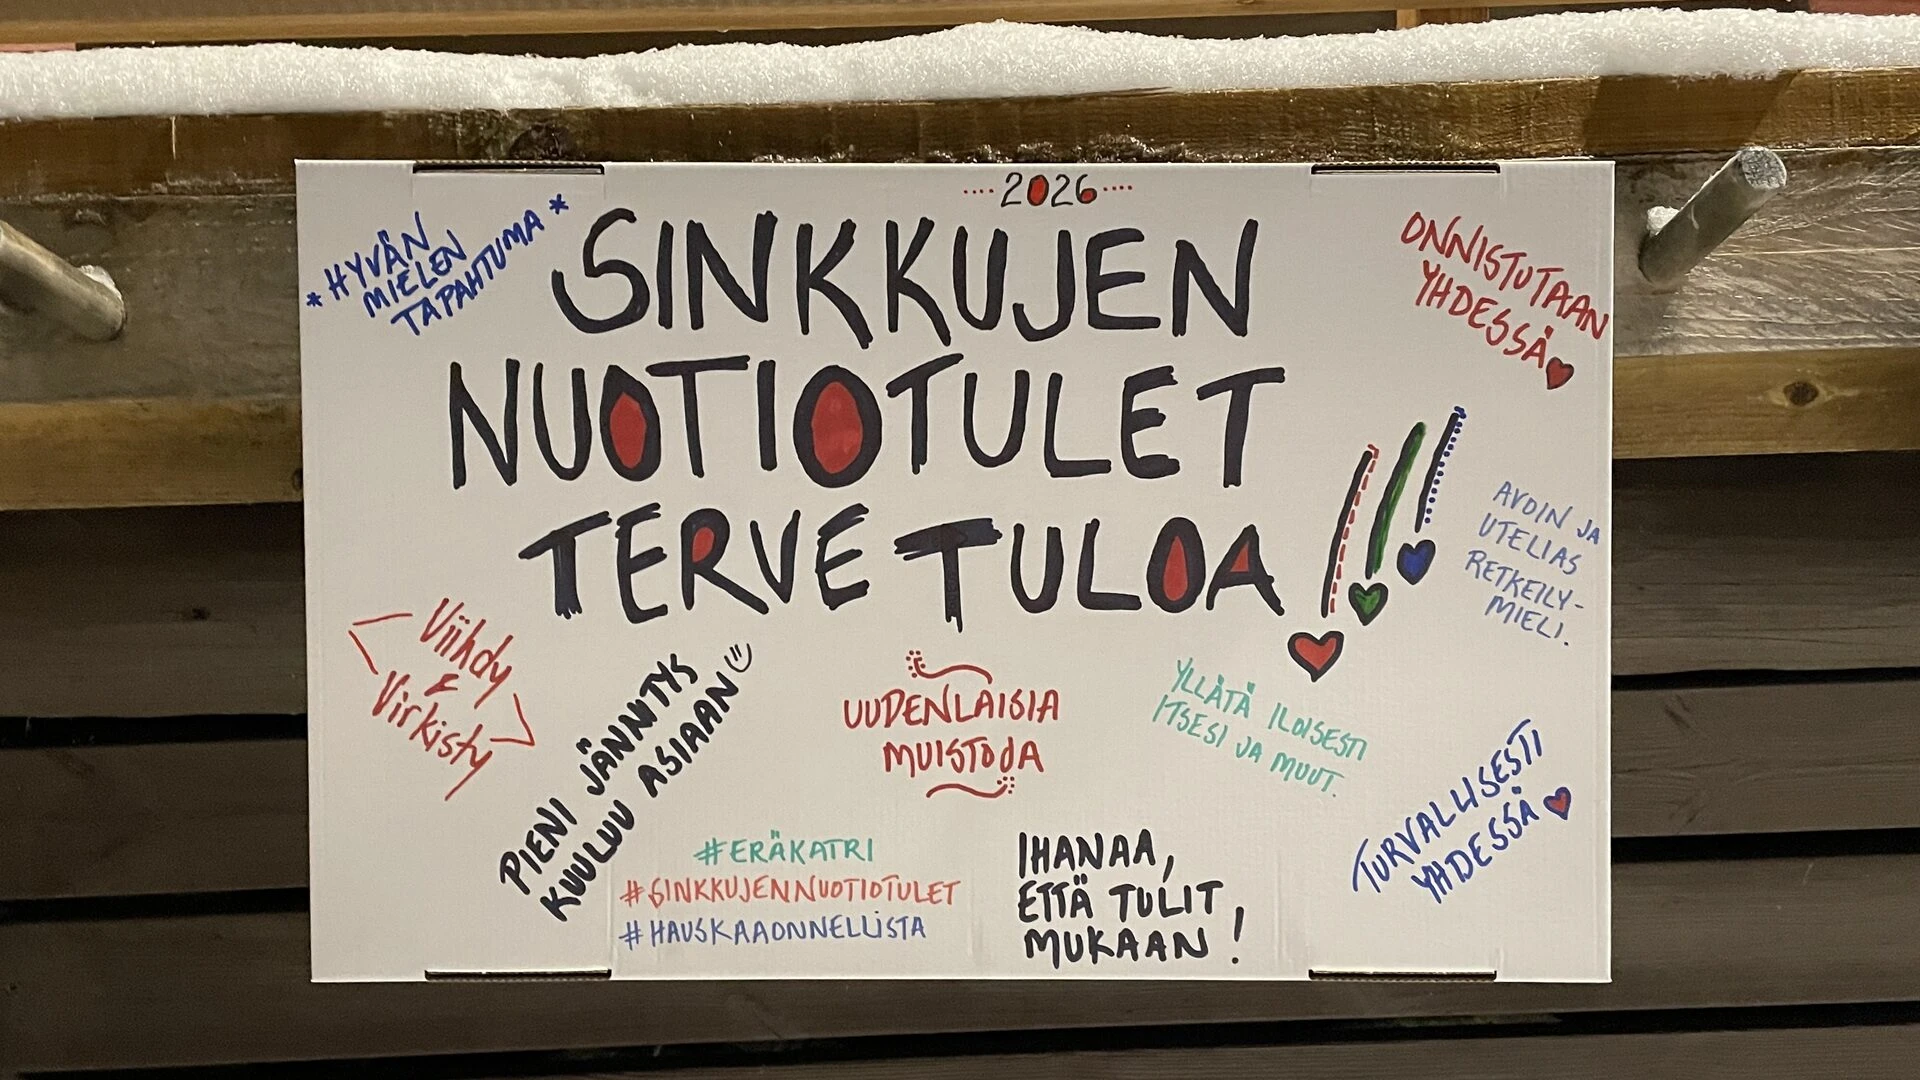 2026
* HYVÄN
MIELEN
TAPAHTUMA *
SINKKUJEN
NUOTIOTULET
TERVE TULOA !!!
ONNISTUTAAN
YHDESSÄ
AVOIN JA
UTELIAS
RETKEILY-
MIELI.
Viihdy
&
Virkisty
PIENI JÄNNITYS
KUULUU ASIAAN
UUDENLAISIA
MUISTOJA
YLLÄTÄ ILOISESTI
ITSESI JA MUUT.
TURVALLISESTI
YHDESSÄ
#ERÄKATRI
#SINKKUJENNUOTIOTULET
#HAUSKAAONNELLISTA
IHANAA,
ETTÄ TULIT
MUKAAN!